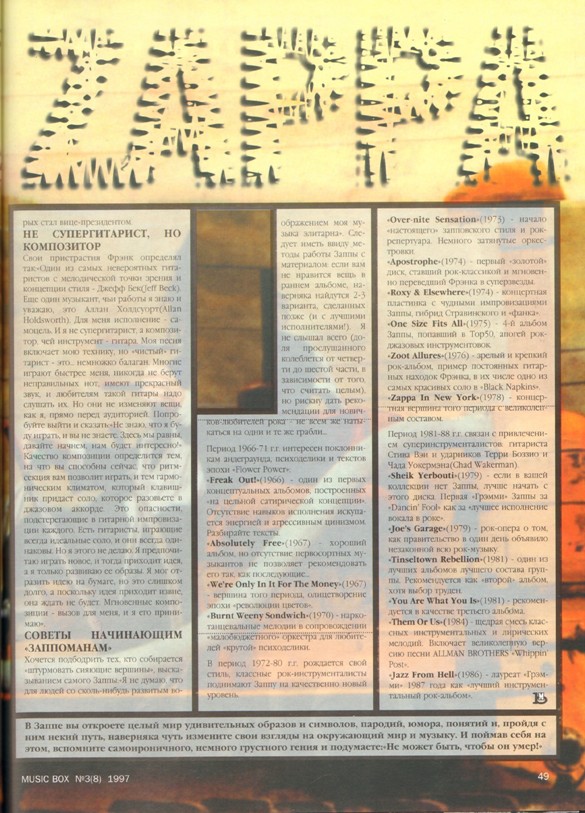 ZAPPA
рых стал вице-президентом.
НЕ СУПЕРГИТАРИСТ, НО
КОМПОЗИТОР
Свои пристрастия Фрэнк определял
так:«Один из самых невероятных гита-
ристов с мелодической точки зрения и
концепции стиля - Джефф Бек(Jeff Beck).
Еще один музыкант, чьи работы я знаю и
уважаю, это Аллан Холдсуорт(Allan
Holdsworth). Для меня исполнение - са-
моцель. И я не супергитарист, а компози-
тор, чей инструмент - гитара. Моя песня
включает мою технику, но «чистый» ги-
тарист - это... немножко балаган. Многие
играют быстрее меня, никогда не берут
неправильных нот, имеют прекрасный
звук, и любителям такой гитары надо
слушать их. Но они не изменяют вещи,
как я, прямо перед аудиторией. Попро-
буйте выйти и сказать:«Не знаю, что я бу-
ду играть, и вы не знаете. Здесь мы равны,
давайте начнем, нам будет интересно!»
Качество композиции определится тем,
на что вы способны сейчас, что ритм-
секция вам позволит играть, и тем гармо-
ническим климатом, который клавиш-
ник придаст соло, которое разовьете в
джазовом аккорде. Это опасности,
подстерегающие в гитарной импровиза-
ции каждого. Есть гитаристы, играющие
всегда идеальные соло, и они всегда оди-
наковы. Но я этого не делаю. Я предпочи-
таю играть новое, и тогда приходит идея,
а я только развиваю ее образы. Я мог от-
разить идею на бумаге, но это слишком
долго, а поскольку идея приходит извне,
она ждать не будет. Мгновенные компо-
зиции - вызов для меня, и я его прини-
маю».
СОВЕТЫ НАЧИНАЮЩИМ
«ЗАППОМАНАМ»
Хочется подбодрить тех, кто собирается
«штурмовать сияющие вершины», выска-
зыванием самого Заппы:«Я не думаю, что
для людей со сколь-нибудь развитым во-
ображением моя му-
зыка элитарна». Сле-
дует иметь ввиду ме-
тоды работы Заппы с
материалом: если вам
не нравится вещь в
раннем альбоме, на-
верняка найдутся 2-3
варианта, сделанных
позже (и с лучшими
исполнителями!). Я
не слышал всего (до-
ля прослушанного
колеблется от четвер-
ти до шестой части, в
зависимости от того,
что считать целым),
но рискну дать реко-
мендации для нович-
тов-любителей рока - не всем же наты-
каться на одни и те же грабли...
Период 1966-71 г.г. интересен поклонни-
кам андеграунда, психоделики и текстов
эпохи «Flower Power».
«Freak Out!»(1966) - один из первых
концептуальных альбомов, построенных
«на цельной сатирической концепции».
Отсутствие навыков исполнения искупа-
ется энергией и агрессивным цинизмом.
Разбирайте тексты.
«Absolutely Free»(1967) - хороший
альбом, но отсутствие первосортных му-
зыкантов не позволяет рекомендовать
его так, как последующие..
«We're Only In It For The Money»(1967)
- вершина того периода, олицетворение
эпохи «революции цветов».
«Burnt Weeny Sandwich»(1970) - нарко-
танцевальные мелодии в сопровождении
«малобюджетного» оркестра для любите-
лей «крутой» психоделики.
В период 1972-80 г.г. рождается свой
стиль, классные рок-инструменталисты
поднимают Заппу на качественно новый
уровень.
«Over-nite Sensation»(1973) - начало
«настоящего» запповского стиля и рок-
репертуара. Немного затянутые оркес-
тровки
«Apostrophe»(1974) - первый «золотой»
диск, ставший рок-классикой и мгновен-
но переведший Фрэнка в суперзвезды.
«Roxy & Elsewhere»(1974) - концертная
пластинка с чудными импровизациями
Заппы, гибрид Стравинского и «фанка»
«One Size Fits All»(1975) - 4-й альбом
Заппы, попавший в Top50, апогей рок-
джазовых инструментовок.
«Zoot Allures»(1976) - зрелый и крепкий
рок-альбом, пример постоянных гитар-
ных находок Фрэнка, в их числе одно из
самых красивых соло в «Black Napkins».
«Zappa In New York»(1978) - концер-
тная вершина того периода с великолеп-
ным составом.
Период 1981-88 г.г. связан с привлечени-
ем суперинструменталистов гитариста
Стива Вэя и ударников Терри Боззио и
Чада Уокермэна(Chad Wakerman).
«Sheik Yerbouti»(1979) - если в вашей
коллекции нет Заппы, лучше начать с
этого диска. Первая «Грэмми» Заппы за
«Dancin' Fool» как за «лучшее исполнение
вокала в роке».
«Joe's Garage»(1979) - рок-опера о том,
как правительство в один день объявило
незаконной всю рок-музыку.
«Tinseltown Rebellion»(1981) - один из
лучших альбомов лучшего состава груп-
пы. Рекомендуется как «второй» альбом,
хотя выбор труден.
«You Are What You Is»(1981) - рекомен-
дуется в качестве третьего альбома.
«Them Or Us»(1984) - щедрая смесь клас-
сных инструментальных и лирических
мелодий. Включает великолепную вер-
сию песни ALLMAN BROTHERS «Whippin'
Post».
«Jazz From Hell»(1986) - лауреат «Грэм-
ми» 1987 года как «лучший инструмен-
тальный рок-альбом».
В Заппе вы откроете целый мир удивительных образов и символов, пародий, юмора, понятий и, пройдя с
ним некий путь, наверняка чуть измените свои взгляды на окружающий мир и музыку. И поймав себя на
этом, вспомните самоироничного, немного грустного гения и подумаете:«Не может быть, чтобы он умер!»
MUSIC BOX №3(8) 1997
49